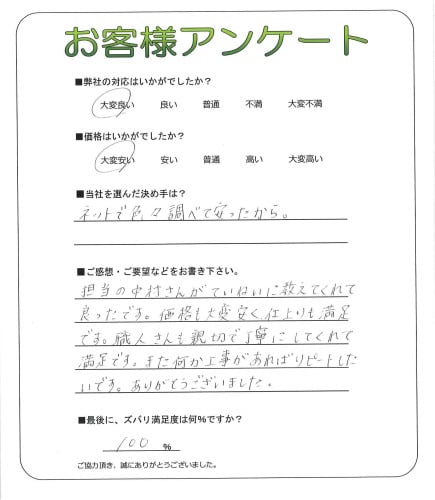 お客様アンケート
■弊社の対応はいかがでしたか?
大変良い 良い 普通 不満 大変不満
■価格はいかがでしたか?
大変安い 安い 普通 高い 大変高い
■当社を選んだ決め手は?
ネットで色々調べて安ったから。
■ご感想・ご要望などをお書き下さい。
担当の中村さんがていねいに教えてくれて
良ったです。価格も大変安く仕上りも満足
です。職人さんも親切で丁寧にしてくれて
満足です。また何か工事があればリピートした
いです。ありがとうございました。
■最後に、ズバリ満足度は何%ですか?
100 %
ご協力頂き、誠にありがとうございました。